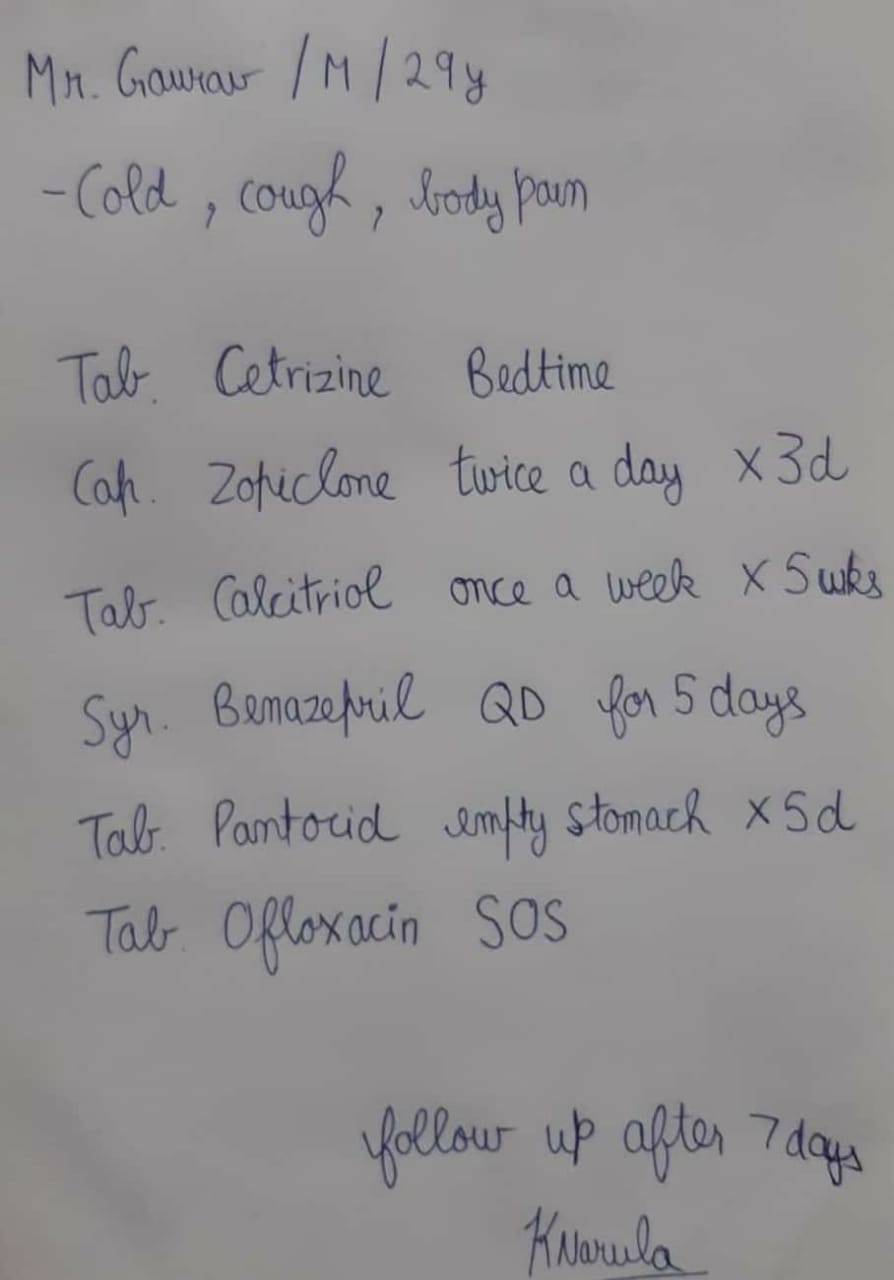 Mr. Gaurav /M/29y
- Cold, cough, body pain
Tab. Cetrizine Bedtime
Cap. Zopiclone twice a day x 3d
Tab. Calcitriol once a week x 5 wks
Syr. Benazepril QD for 5 days
Tab. Pantocid empty stomach x 5d
Tab. Ofloxacin SOS
follow up after 7 days
KNarula